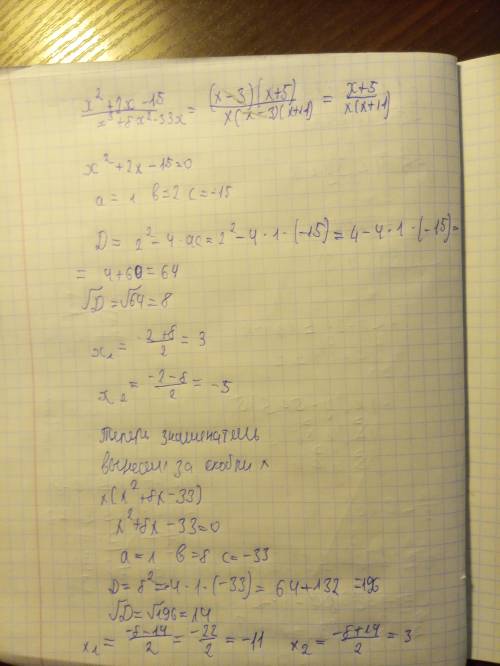 x²+2x-15 / x³+8x²-33x = (x-3)(x+5) / x(x-3)(x+11) = x+5 / x(x+11)
x²+2x-15=0
a=1 b=2 c=-15
D= 2²-4·ac=2²-4·1·(-15)=4-4·1·(-15)=
= 4+60=64
√D=√64=8
x₁= -2+8 / 2 = 3
x₂= -2-8 / 2 = -5
Теперь знаменатель
вынесем за скобки x
x(x²+8x-33)
x²+8x-33=0
a=1 b=8 c=-33
D=8²-4·1·(-33)= 64+132=196
√D=√196=14
x₁= -8-14 / 2 = -22 / 2 = -11 x₂= -8+14 / 2 = 3